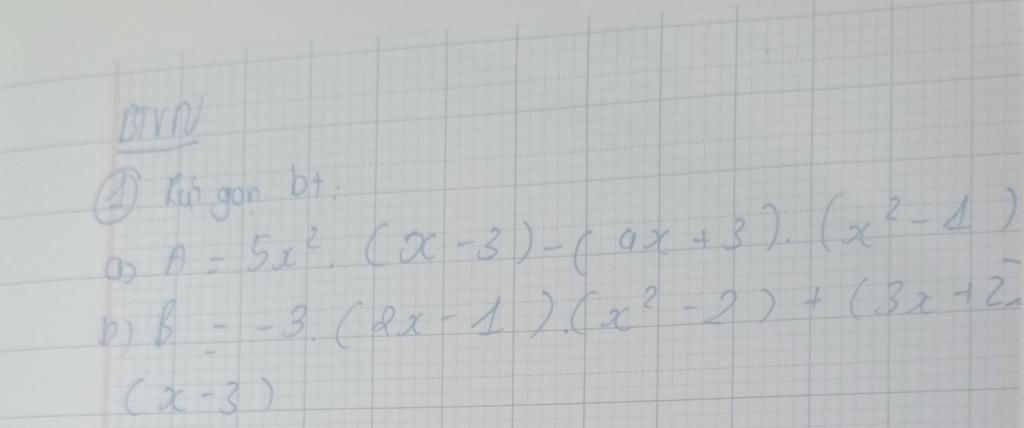 BTVN
① Rút gọn bt:
a) A = 5x². (x - 3) - (4x + 3). (x² - 1)
b) B = -3. (2x - 1).(x² - 2) + (3x + 2).
(x - 3)